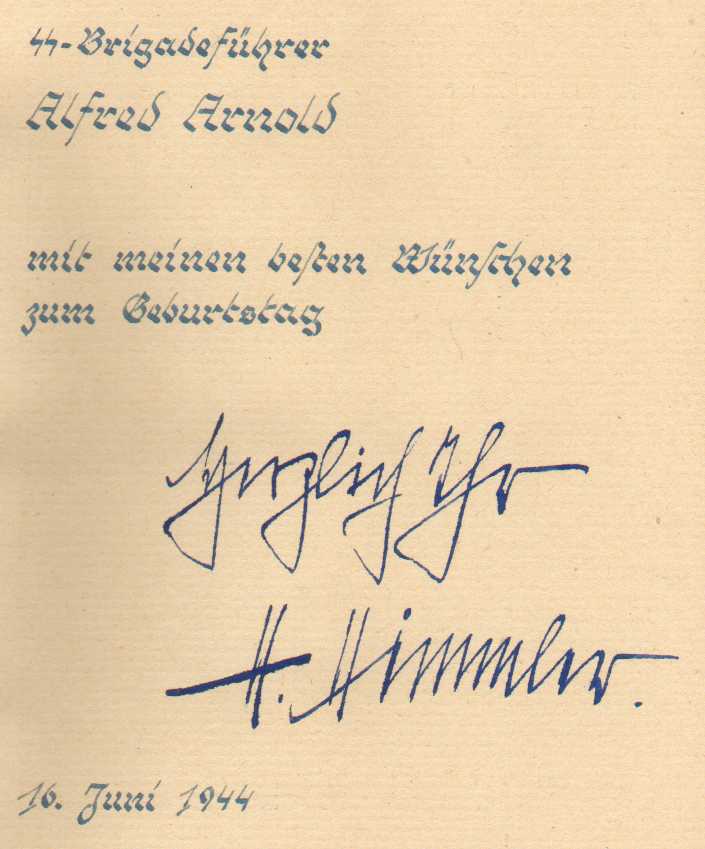 SS-Brigadeführer
Alfred Arnold
mit meinen besten Wünschen
zum Geburtstag
Herzlich Ihr
H. Himmler.
16. Juni 1944